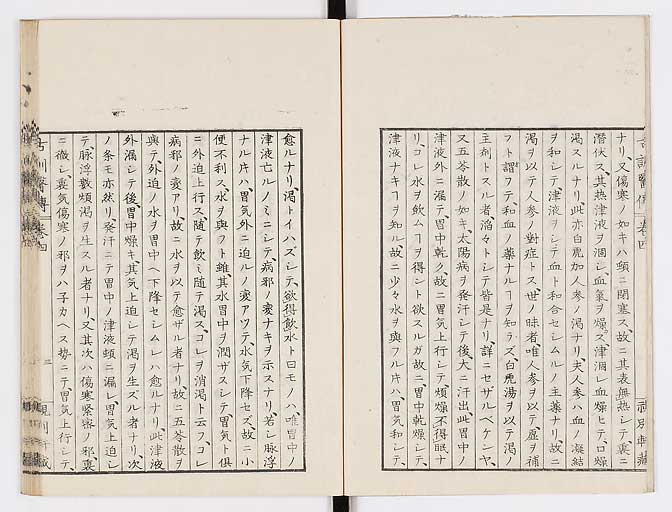 ナリ、又傷寒ノ如キハ頻ニ閉塞ス、故ニ其表無熱シテ、裏ニ
潜伏ス、其熱津液ヲ涸シ、血氣ヲ燥ス、津涸レ血燥ヒテ、口燥
渇スルナリ、此亦白虎加人参ノ渇ナリ、夫人参ハ血ノ凝結
ヲ和シテ、津液ヲシテ血ト和合セシムルノ主薬ナリ、故ニ
渇ヲ以テ人参ノ對症トス、世ノ昧者、唯人参ヲ以テ虚ヲ補
フト謂フテ、和血ノ薬ナルヿヲ知ラズ、白虎湯ヲ以テ渇ノ
主剤トスル者、滔々トシテ皆是ナリ、詳ニセザルベケンヤ、
又五苓散ノ如キ、太陽病ヲ発汗シテ後、大ニ汗出此胃中ノ
津液外ニ漏テ、胃中乾ク、故ニ胃気上行シテ、煩燥不得眠ナ
リ、コレ水ヲ飲ムヿヲ得ント欲スルガ故ニ、胃中乾燥シテ、
津液ナキヿヲ知ル、故ニ少々水ヲ與フル片ハ、胃気和シテ、
愈ルナリ、渇トイハズシテ、欲得飲水ト曰モノハ、唯胃中ノ
津液亡ルノミニシテ、病邪ノ変ナキヲ示スナリ、若シ脉浮
ナル片ハ胃気外ニ迫ルノ変アツテ、水気下降セズ、故ニ小
便不利ス、水ヲ與フト雖、其水胃中ヲ潤サズシテ、胃気ト倶
ニ外迫上行ス、随テ飲ミ随テ渇ス、コレヲ消渇ト云フ、コレ
病邪ノ変アリ、故ニ水ヲ以テ愈ザル者ナリ、故ニ五苓散ヲ
與テ、外迫ノ水ヲ胃中ヘ下降セシムレハ愈ルナリ、此津液
外漏シテ後、胃中燥キ、其気上迫シテ渇ヲ生ズル者ナリ、次
ノ条モ亦然リ、発汗ニテ胃中ノ津液頻ニ漏レ、胃気上迫シ
テ、脉浮数煩渇ヲ生スル者ナリ、又其次ハ傷寒緊密ノ邪、裏
ニ徹シ、裏気傷寒ノ邪ヲハ子カヘス勢ニテ、胃気上行シテ、